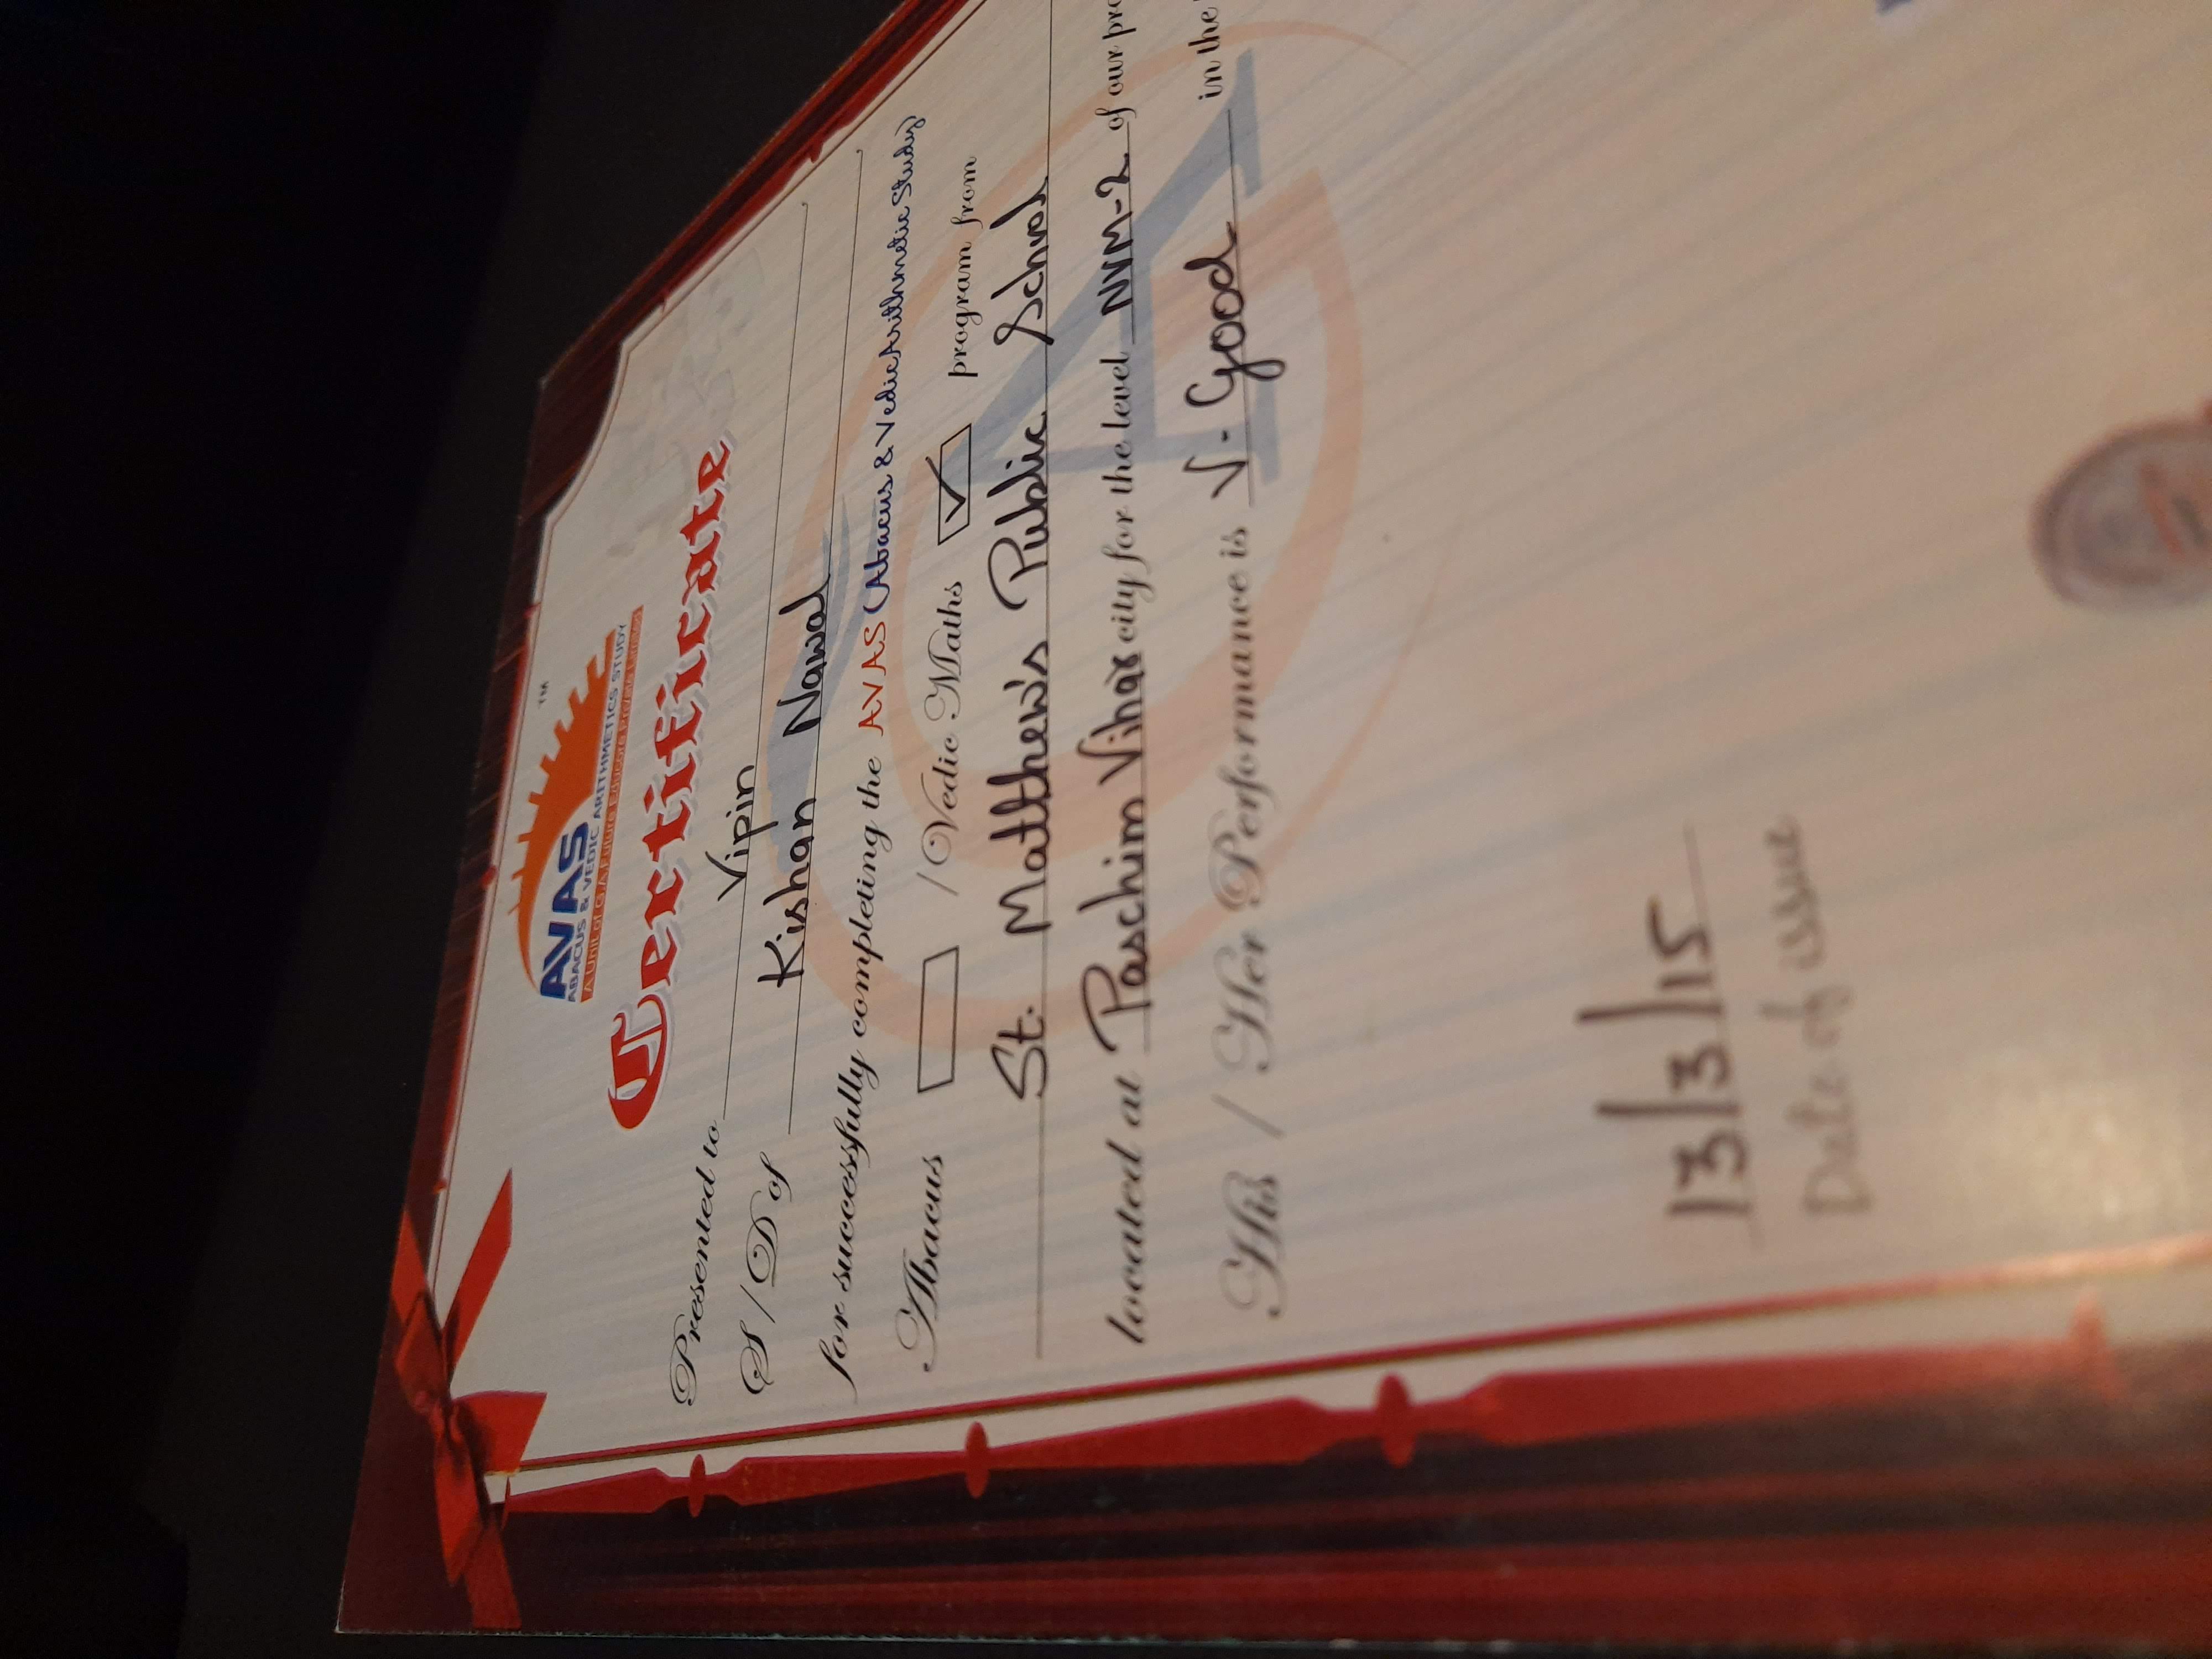 AVAS TM
ABACUS & VEDIC ARITHMETICS STUDY
A Unit of G.A Future Educare Private Limited
Certificate
Presented to Vipin
S / D of Kishan Nawal
for successfully completing the AVAS (Abacus & Vedic Arithmetic Study)
Abacus / Vedic Maths ✓ program from
St. Matthew's Public School
located at Paschim Vihar city for the level NVM-2 of our pro
His / Her Performance is V. Good in the
13/3/15
Date of issue